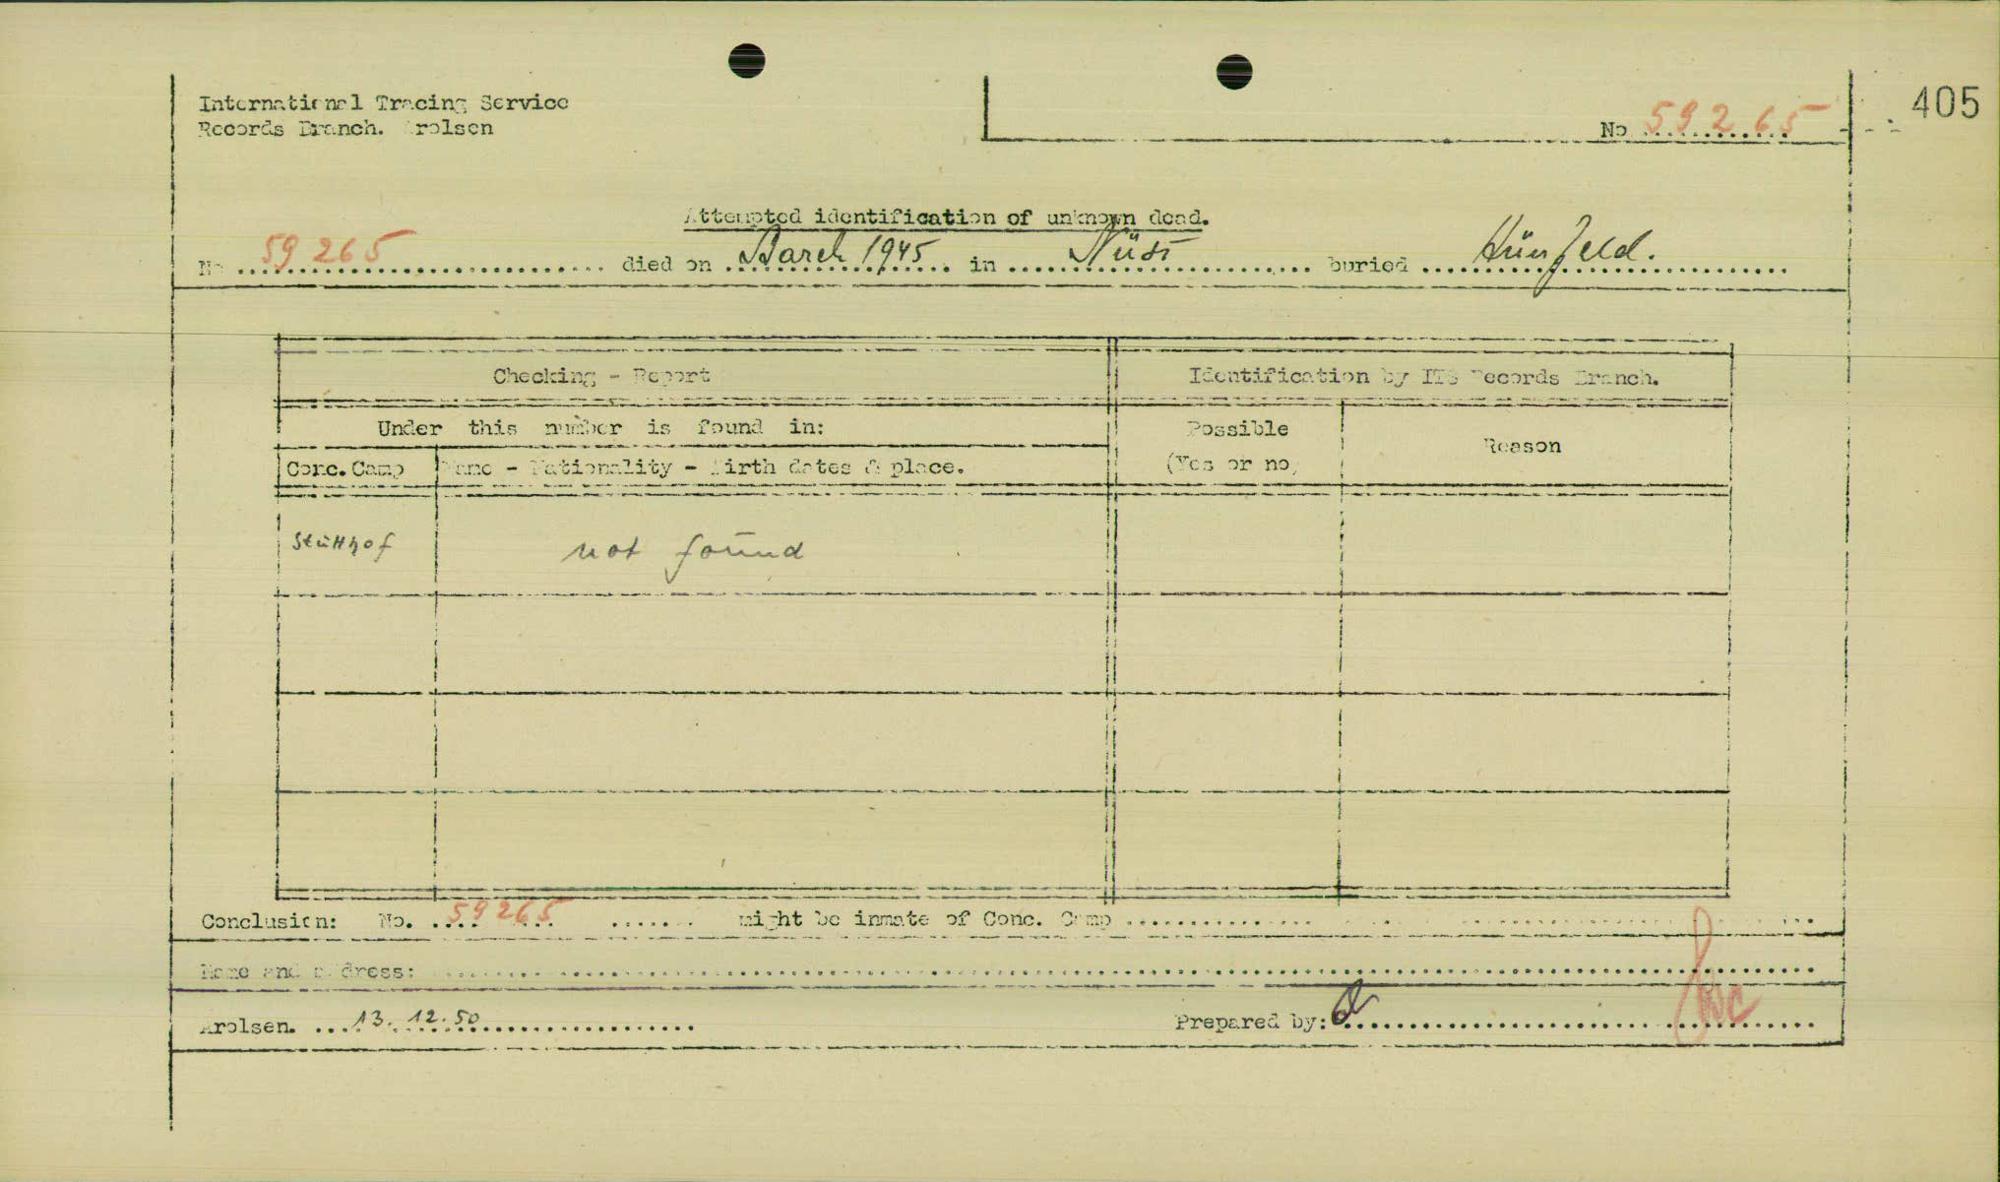 International Tracing Service
Records Branch. Arolsen
405
No 59265
Attempted identification of unknown dead.
No 59265 died on March 1945 in Nüst buried Hünfeld.
Checking - Report
Identification by ITS Records Branch.
Under this number is found in:
Possible
(Yes or no)
Reason
Conc. Camp
Name - Nationality - Birth dates & place.
Stutthof
not found
Conclusion: No. 59265 might be inmate of Conc. Camp
Name and address:
Arolsen. 13.12.50
Prepared by: